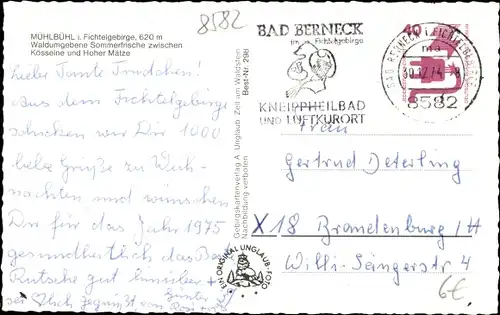 8582
MÜHLBÜHL i. Fichtelgebirge, 620 m
Waldumgebene Sommerfrische zwischen
Kösseine und Hoher Mätze
Liebe Tante Trudchen!
Aus dem Fichtelgebirge
schicken wir Dir 1000
liebe Grüße zu Weih-
nachten und wünschen
Dir für das Jahr 1975
gesundheitlich das Be
Rutsche gut hinüber +
sei herzlich gegrüßt von
Günter
Gebirgskartenverlag A. Unglaub Zell am Waldstein
Nachbildung verboten Best-Nr. 298
EIN ORIGINAL UNGLAUB-FOTO
BAD BERNECK
im Fichtelgebirge
KNEIPPHEILBAD
UND LUFTKURORT
BAD BERNECK I. FICHTELGEBIRGE
ma
8582
40
Frau
Gertrud Deterling
X 18 Brandenburg/H
Willi-Sänger str 4
6€